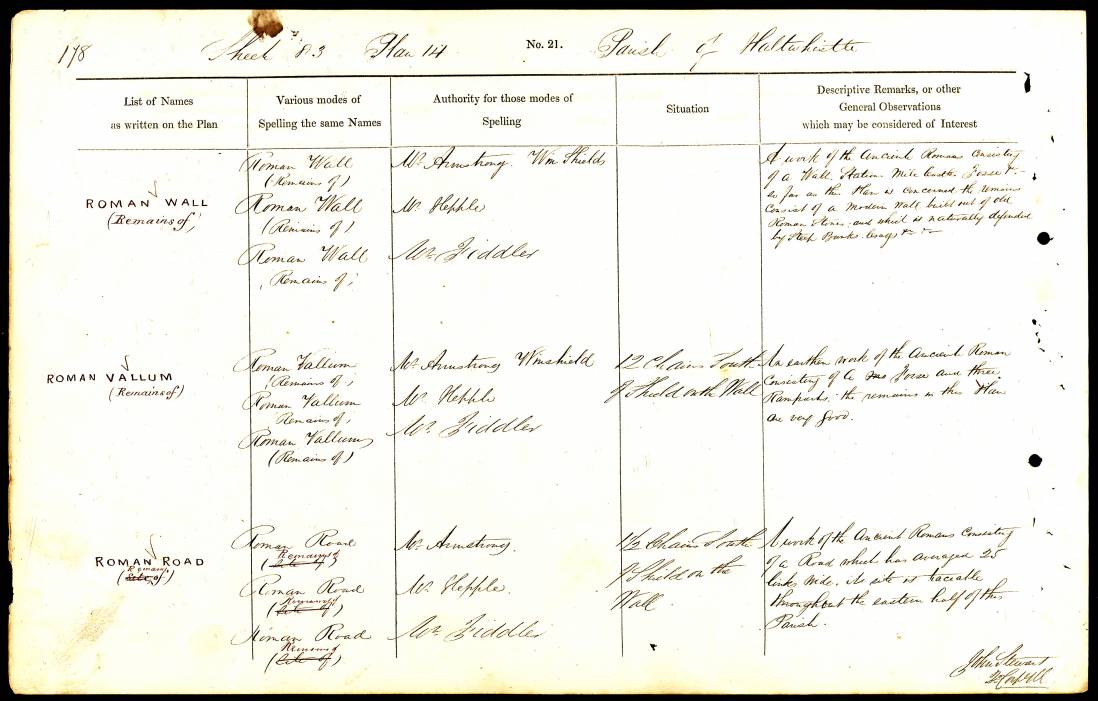 178
Sheet 83 Plan 14 No. 21. Parish of Haltwhistle
List of Names
as written on the Plan
Various modes of
Spelling the same Names
Authority for those modes of
Spelling
Situation
Descriptive Remarks, or other
General Observations
which may be considered of Interest
ROMAN WALL
(Remains of)
Roman Wall
(Remains of)
Roman Wall
(Remains of)
Roman Wall
(Remains of)
Mr. Armstrong. Wm Shields
Mr. Hepple
Mr. Fiddler
A work of the Ancient Romans Consisting
of a Wall. Station Mile Castle Fosse &c
as far as this Plan is Concerned the remains
Consist of a Modern Wall built out of old
Roman Stones. and which is naturally defended
by Steep Banks. Crags &c
ROMAN VALLUM
(Remains of)
Roman Vallum
(Remains of)
Roman Vallum
Remains of
Roman Vallum
(Remains of)
Mr. Armstrong Winshield
Mr. Hepple
Mr. Fiddler
12 Chains South
of Shield on the Wall
An earthen work of the Ancient Roman
Consisting of a Fosse and three
Ramparts. the remains in this Plan
are very good.
ROMAN ROAD
Remains
(Site of)
Roman Road
Remains of
(Site of)
Roman Road
Remains of
(Site of)
Roman Road
Remains of
(Site of)
Mr. Armstrong.
Mr. Hepple.
Mr. Fiddler
1 1/2 Chains South
of Shield on the
Wall
A work of the Ancient Romans Consisting
of a Road which has averaged 25
links wide. its site is traceable
throughout the eastern half of this
Parish.
John Stewart